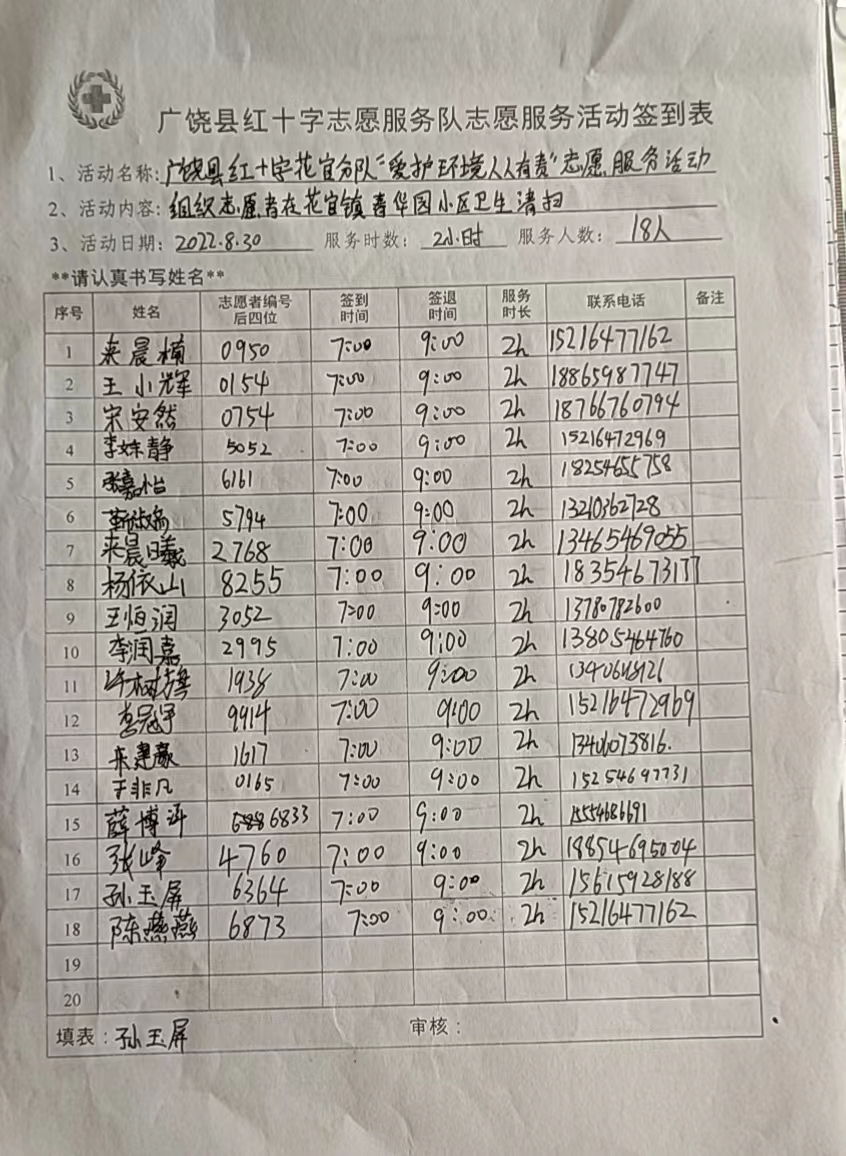 广饶县红十字志愿服务队志愿服务活动签到表
1、活动名称:广饶县红十字花官分队“爱护环境人人有责”志愿服务活动
2、活动内容:组织志愿者在花官镇春华园小区卫生清扫
3、活动日期:2022.8.30 服务时数:2小时 服务人数:18人
**请认真书写姓名**
序号 姓名 志愿者编号后四位 签到时间 签退时间 服务时长 联系电话 备注
1 来晨楠 0950 7:00 9:00 2h 15216477162
2 王小辉 0154 7:00 9:00 2h 18865987747
3 宋安然 0754 7:00 9:00 2h 18766760794
4 李姝静 5052 7:00 9:00 2h 15216472969
5 张嘉怡 6161 7:00 9:00 2h 18254655758
6 5794 7:00 9:00 2h 13210362728
7 来晨曦 2768 7:00 9:00 2h 13465469055
8 杨依山 8255 7:00 9:00 2h 18354673177
9 王恒润 3052 7:00 9:00 2h 13780782600
10 李润嘉 2995 7:00 9:00 2h 13805464760
11 1938 7:00 9:00 2h
12 李冠宇 9914 7:00 9:00 2h 15216472969
13 1617 7:00 9:00 2h 13406073816.
14 于非凡 0165 7:00 9:00 2h 15254697731
15 薛博 6833 7:00 9:00 2h 15554686691
16 张峰 4760 7:00 9:00 2h 18854695004
17 孙玉屏 6364 7:00 9:00 2h 15615928188
18 陈燕燕 6873 7:00 9:00 2h 15216477162
19
20
填表:孙玉屏 审核: